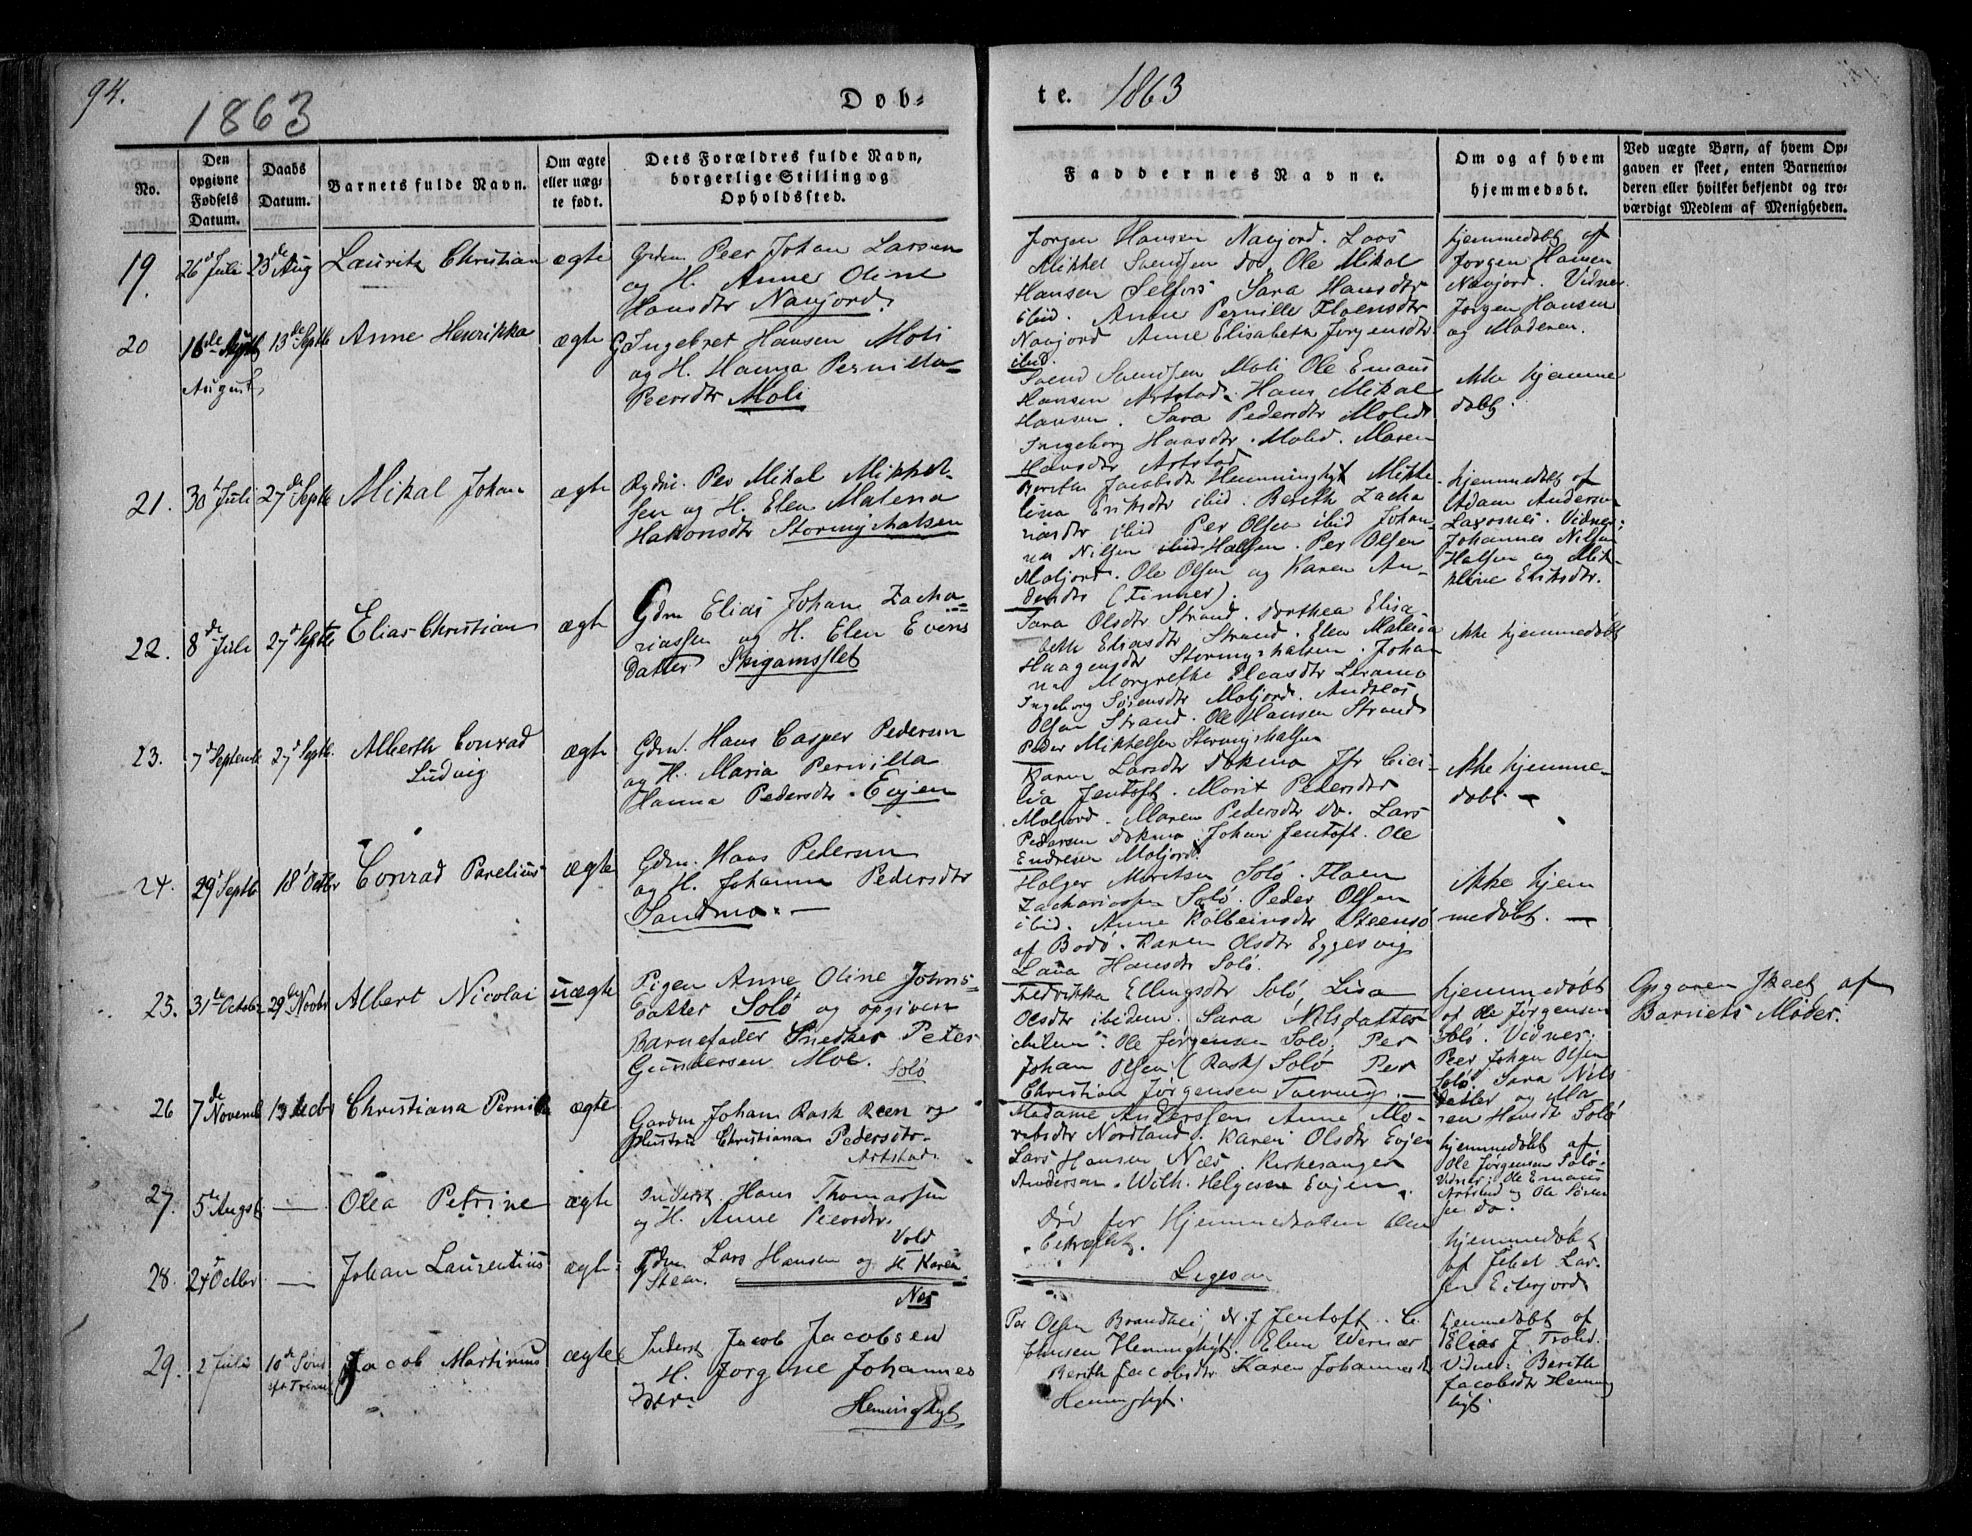 94.
1863
Døb-
te. 1863
No.
Den opgivne Fødsels Datum.
Daabs Datum.
Barnets fulde Navn.
Om ægte eller uægte født.
Dets Forældres fulde Navn, borgerlige Stilling og Opholdssted.
Faddernes Navne.
Om og af hvem hjemmedøbt.
Ved uægte Børn, af hvem Opgaven er skeet, enten Barnemoderen eller hvilket bekjendt og troværdigt Medlem af Menigheden.
19. 26 Juli 23de Aug Lauritz Christian ægte
Grdm. Peer Johan Larsen
og H. Anne Oline
Hansdtr Navjord.
Jørgen Hansen Navjord. Laos
Mikkel Svendsen do. Ole Mikal
Hansen Selfors Sara Hansdtr
ibid. Anne Pernille Floensdtr
Navjord Anne Elisabeth Jørgensdtr
ibid.
hjemmedøbt af
Jørgen Hansen
Navjord. Vidner
Jørgen Hansen
og Moderen.
20 16de August 13de Septb Anne Henrikka ægte
G Ingebret Hansen Moli
og H. Hanna Pernilla
Peersdtr Moli
Svend Svendsen Moli Ole Emaus
Hansen Artstad. Hans Mikal
Hansen. Sara Pedersdtr Molid
Ingeborg Hansdtr. Molid. Maren
Hansdtr Artstad
Ikke hjemme
døbt.
21. 30 Juli 27de Septb Mikal Johan ægte
Rydn. Per Mikal Mikkel-
sen og H. Elen Malena
Hakonsdtr Stormyhalsen
Berith Jacobsdtr Hemminghyt Mikke
lina Eriksdtr ibid. Berith Zacha
riasdtr ibid Per Olsen ibid Johan-
nes Nilsen Halsen. Per Olsen
Moljord. Ole Olsen og Karen An-
dersdtr (Finner).
hjemmedøbt af
Adam Andersen
Laxosnes. Vidner:
Johannes Nilsen
Halsen og Mik
keline Eriksdtr.
22. 8de Juli 27de Septb Elias Christian ægte
Gdm Elias Johan Zacha-
riassen og H. Elen Evens
Datter Skigamslet
Sara Olsdtr Strand. Dorthea Elisa
beth Eliasdtr Strand. Elen Malena
Haagensdtr Stormyhalsen. Johan
na Morgrethe Claasdtr Leiramo
Ingeborg Sørensdtr Moljord. Andreas
Olsen Strand. Ole Hansen Strand
Peder Mikkelsen Stormyhalsen
Ikke hjemmedøbt
23. 7d Septemb 27d Septb. Alberth Conrad ægte
Ludvig
Gdm. Hans Casper Pedersen
og H. Maria Pernilla
Hanna Pedersdtr. Evjen
Karen Larsdtr Dokmo Jfr Ceci-
lia Jentoft. Morit Pedersdtr
Moljord. Maren Pedersdtr do. Lars
Pedersen Dokmo Johan Jentoft. Ole
Endresen Moljord.
Ikke hjemme-
døbt. —
24. 29d Septb 18d Octbr Conrad Parelius ægte
Gdm. Hans Pedersen
og H. Johanna Pedersdtr
Sandmo. —
Holger Moritsen Solø. Floen
Zachariassen Solø. Peder Olsen
ibid. Anne Kolbeinsdtr Steensø
af Bodø. Karen Olsdtr Eggesvig
Laua Hansdtr Solø.
Ikke hjem
medøbt. —
25. 31te October 29de Novbr Albert Nicolai uægte
Pigen Anne Oline Johns-
Datter Solø og opgiven
Barnefader Snedker Peter
Gundersen Moe.
Solø
Fredrikka Ellingsdtr Solø, Lisa
Olsdtr ibidem. Sara Nilsdatter
ibidem. Ole Jørgensen Solø. Per
Johan Olsen (Rask) Solø Per
Christian Jørgensen Tverving. —
hjemmedøbt
af Ole Jørgensen
Solø. Vidner:
Peer Johan Olsen
Solø. Sara Nils
datter og Ma
ren Hansdtr Solø
Opgaven skeet af
Barnets Moder.
26 7de Novemb 13 Decbr Christiana Pernilla ægte
Gardm Johan Rask Reen og
Hustru Christiana Pedersdtr.
Artstad.
Madame Anderssen Anne Mo-
ritsdtr Nordland. Karen Olsdtr Evjen
Lars Hansen Næs. Kirkesanger
Andersen. Wilh. Helgesen Evjen.
hjemmedøbt af
Ole Jørgensen Solø-
Vidner: Ole Emaus
Artstad og Ole Søren
sen do.
27. 5te Augst. — Olea Petrine ægte
Inderst. Hans Thomassen
og H. Anne Peersdtr.
Vold
Død før Hjemmedaaben blev
bekræftet.
28. 24d Octbr. — Johan Laurentius ægte
Gdm Lars Hansen og H Karen
Steen.
Næs
Ligesaa
hjemmedøbt
af Jebel Lar-
sen Eiterjord
29. 2 Julii 10de Sønd
eft Trinit Jacob Martinus ægte
Inderst Jacob Jacobsen
H. Jorgine Johannes
dtr.
Heminghyt
Per Olsen Brandhei, do. J Jentoft. C.
Johnsen Heminghyt. Elen Wernær
Berith Jacobsdtr Karen Johannesdtr
Heminghyt.
hjemmedøbt af
Elias J. Trold.
Vidner: Berith
Jacobsdtr Heming
hyt.